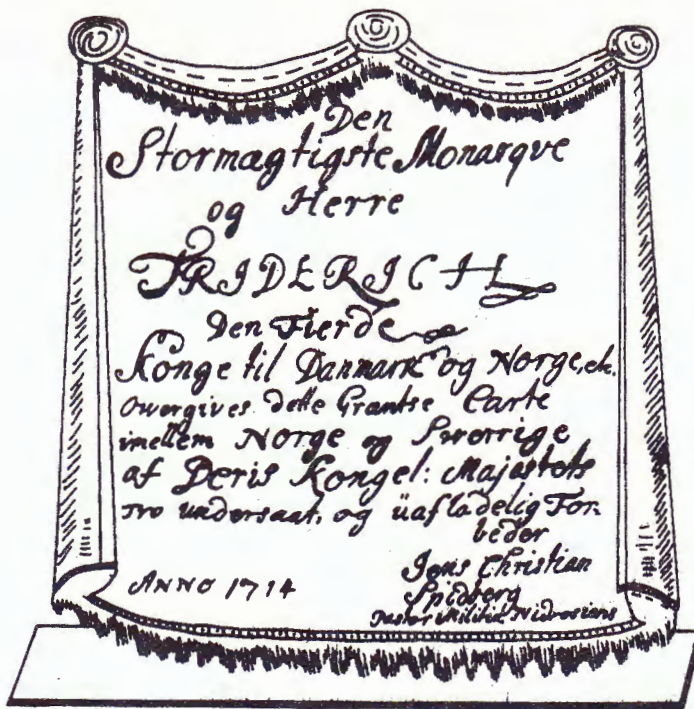 Den
Stormægtigste Monarqve
og Herre
FRIDERICH
Den Fierde
Konge til Danmark og Norge, etc.
owergives dette Grentse Carte
imellem Norge og Swerrige
af Deris Kongel: Majestets
tro undersaat, og üafladelig For-
beder
Jens Christian
Spidberg
Pastor Militiæ Nidrosiens
ANNO 1714